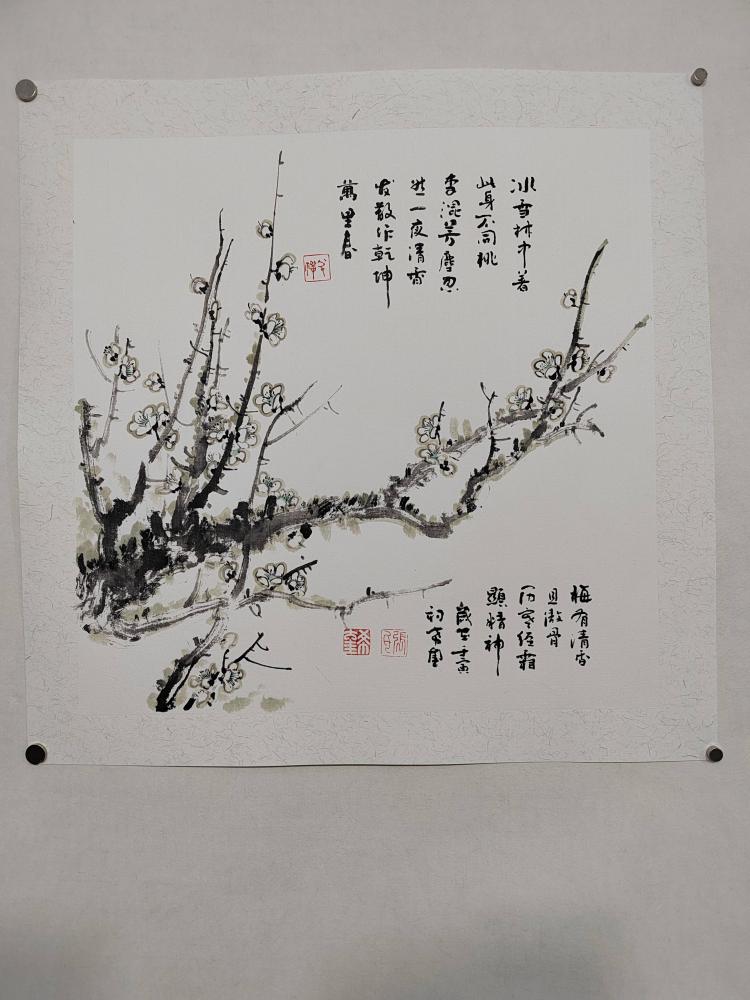 冰雪林中著
此身不同桃
李混芳塵忽
然一夜清香
发散作乾坤
萬里春
梅有清香
且傲骨
历寒经霜
顯精神
歲在壬寅
初